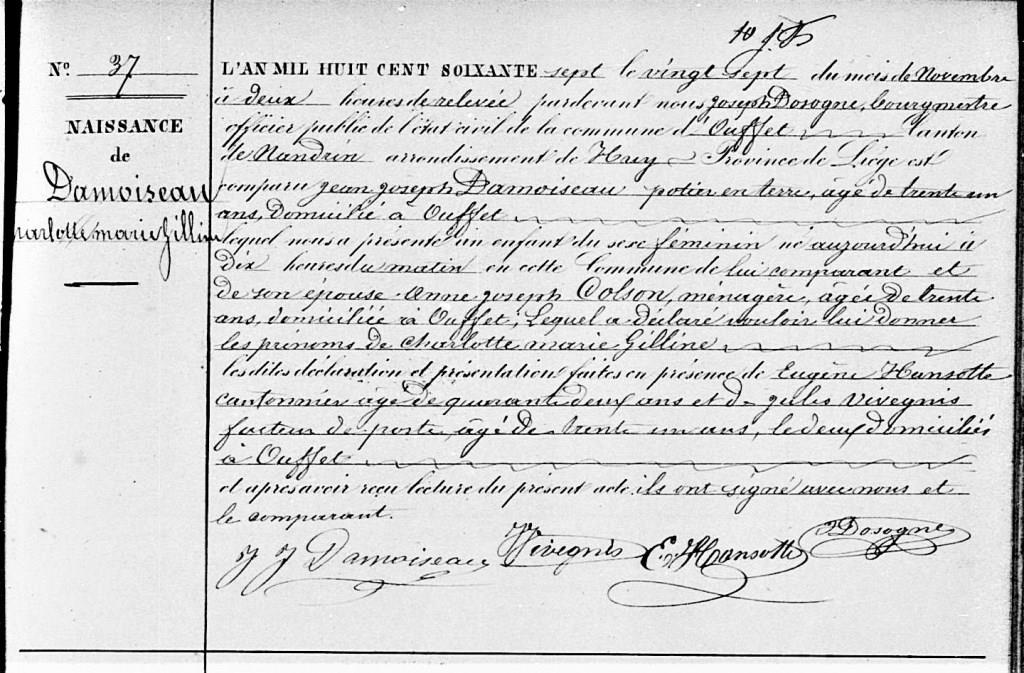 Nº 37
NAISSANCE
de
Damoiseau
harlotte marie Gilline
L'AN MIL HUIT CENT SOIXANTE sept le vingt sept du mois de Novembre
à deux heures de relevée pardevant nous joseph Dosogne, bourgmestre
officier public de l'état civil de la commune d'Ouffet Canton
de Nandrin arrondissement de Huy Province de Liége est
comparu jean joseph Damoiseau potier en terre, âgé de trente un
ans, Domicilié à Ouffet
lequel nous a présenté un enfant du sexe féminin né aujourd'hui à
Dix heures du matin en cette Commune de lui comparant et
de son épouse Anne joseph Colson, ménagère, âgée de trente
ans, domiciliée à Ouffet, Lequel a déclaré vouloir lui donner
les prénoms de Charlotte marie Gilline
les dites déclaration et présentation faites en présence de Eugène Hansotte
cantonnier âgé de quarante deux ans et de jules Vivegnis
facteur de poste, âgé de trente un ans, le deux domiciliés
à Ouffet
et après avoir reçu lecture du présent acte ils ont signé avec nous et
le comparant.
J J Damoiseau Vivegnis E Hansotte J Dosogne